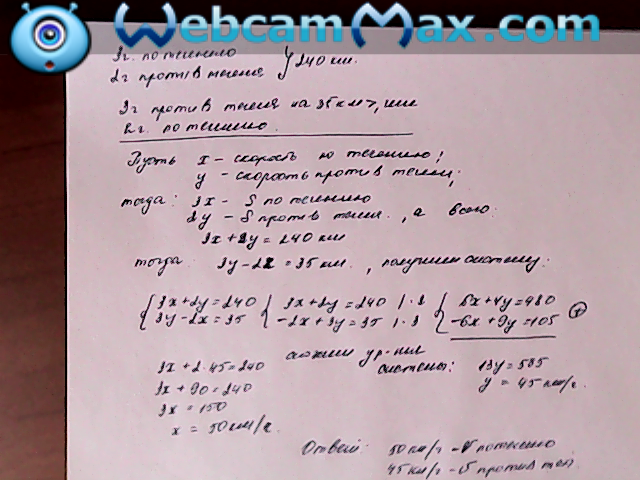 WebcamMax.com
3ч. по течению
2ч против течения } 240 км.
3ч против течения на 35 км >, чем
2ч. по течению.
Пусть x – скорость по течению;
y – скорость против течен.;
тогда: 3x – S по течению
2y – S против течен., а всего:
3x + 2y = 240 км
тогда 3y – 2x = 35 км., получим систему:
{ 3x + 2y = 240 { 3x + 2y = 240 | · 2 { 6x + 4y = 480
3y – 2x = 35 -2x + 3y = 35 | · 3 -6x + 9y = 105 (+)
сложим ур-ния
3x + 2·45 = 240 системы: 13y = 585
3x + 90 = 240 y = 45 км/ч.
3x = 150
x = 50 км/ч.
Ответ: 50 км/ч – V по течению
45 км/ч – V против теч.